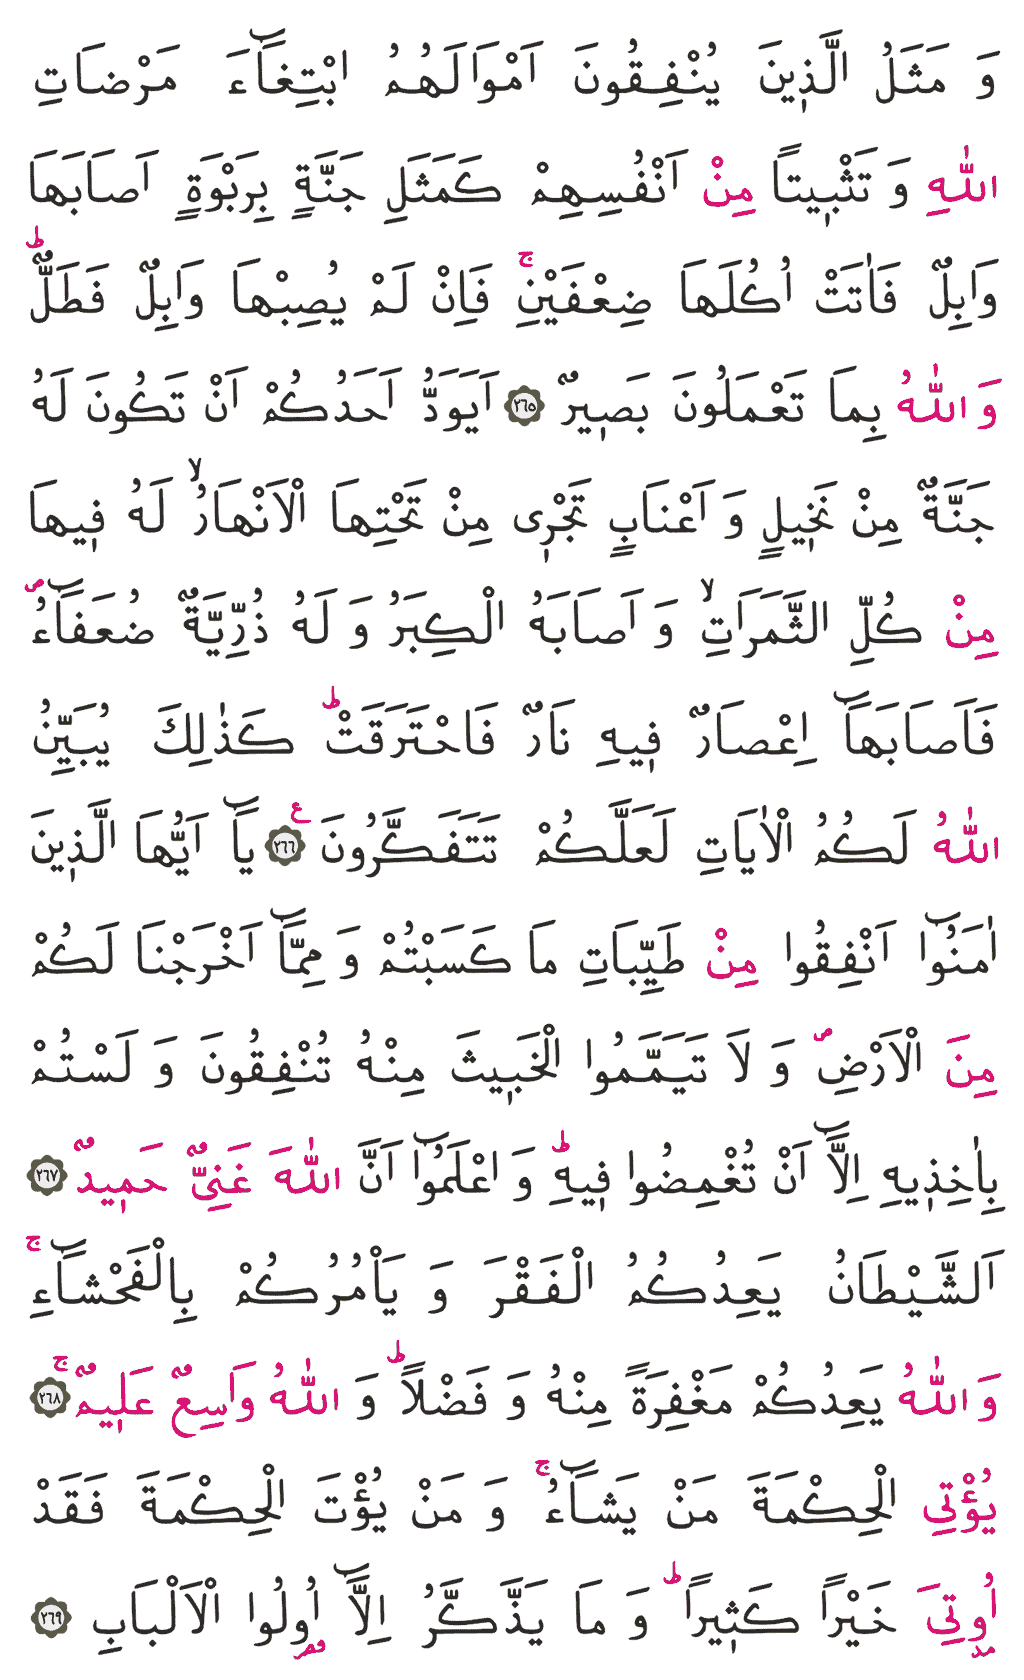 وَ مَثَلُ الَّذ۪ينَ يُنْفِقُونَ اَمْوَالَهُمُ ابْتِغَٓاءَ مَرْضَاتِ
اللّٰهِ وَ تَثْب۪يتاً مِنْ اَنْفُسِهِمْ كَمَثَلِ جَنَّةٍ بِرَبْوَةٍ اَصَابَهَا
وَابِلٌ فَاٰتَتْ اُكُلَهَا ضِعْفَيْنِۚ فَاِنْ لَمْ يُصِبْهَا وَابِلٌ فَطَلٌّۜ
وَ اللّٰهُ بِمَا تَعْمَلُونَ بَص۪يرٌ ﴿٢٦٥﴾ اَيَوَدُّ اَحَدُكُمْ اَنْ تَكُونَ لَهُ
جَنَّةٌ مِنْ نَخ۪يلٍ وَ اَعْنَابٍ تَجْر۪ى مِنْ تَحْتِهَا الْاَنْهَارُۙ لَهُ ف۪يهَا
مِنْ كُلِّ الثَّمَرَاتِۙ وَ اَصَابَهُ الْكِبَرُ وَ لَهُ ذُرِّيَّةٌ ضُعَفَٓاءُۖ
فَاَصَابَهَٓا اِعْصَارٌ ف۪يهِ نَارٌ فَاحْتَرَقَتْۜ كَذٰلِكَ يُبَيِّنُ
اللّٰهُ لَكُمُ الْاٰيَاتِ لَعَلَّكُمْ تَتَفَكَّرُونَ ﴿٢٦٦﴾ ع يَٓا اَيُّهَا الَّذ۪ينَ
اٰمَنُٓوا اَنْفِقُوا مِنْ طَيِّبَاتِ مَا كَسَبْتُمْ وَ مِمَّٓا اَخْرَجْنَا لَكُمْ
مِنَ الْاَرْضِۖ وَ لَا تَيَمَّمُوا الْخَب۪يثَ مِنْهُ تُنْفِقُونَ وَ لَسْتُمْ
بِاٰخِذ۪يهِ اِلَّٓا اَنْ تُغْمِضُوا ف۪يهِۜ وَ اعْلَمُٓوا اَنَّ اللّٰهَ غَنِىٌّ حَم۪يدٌ ﴿٢٦٧﴾
اَلشَّيْطَانُ يَعِدُكُمُ الْفَقْرَ وَ يَاْمُرُكُمْ بِالْفَحْشَٓاءِۚ
وَ اللّٰهُ يَعِدُكُمْ مَغْفِرَةً مِنْهُ وَ فَضْلاًۜ وَ اللّٰهُ وَاسِعٌ عَل۪يمٌۚ ﴿٢٦٨﴾
يُؤْتِى الْحِكْمَةَ مَنْ يَشَٓاءُۚ وَ مَنْ يُؤْتَ الْحِكْمَةَ فَقَدْ
اُو۫تِىَ خَيْراً كَث۪يراًۜ وَ مَا يَذَّكَّرُ اِلَّٓا اُو۬لُوا الْاَلْبَابِ ﴿٢٦٩﴾